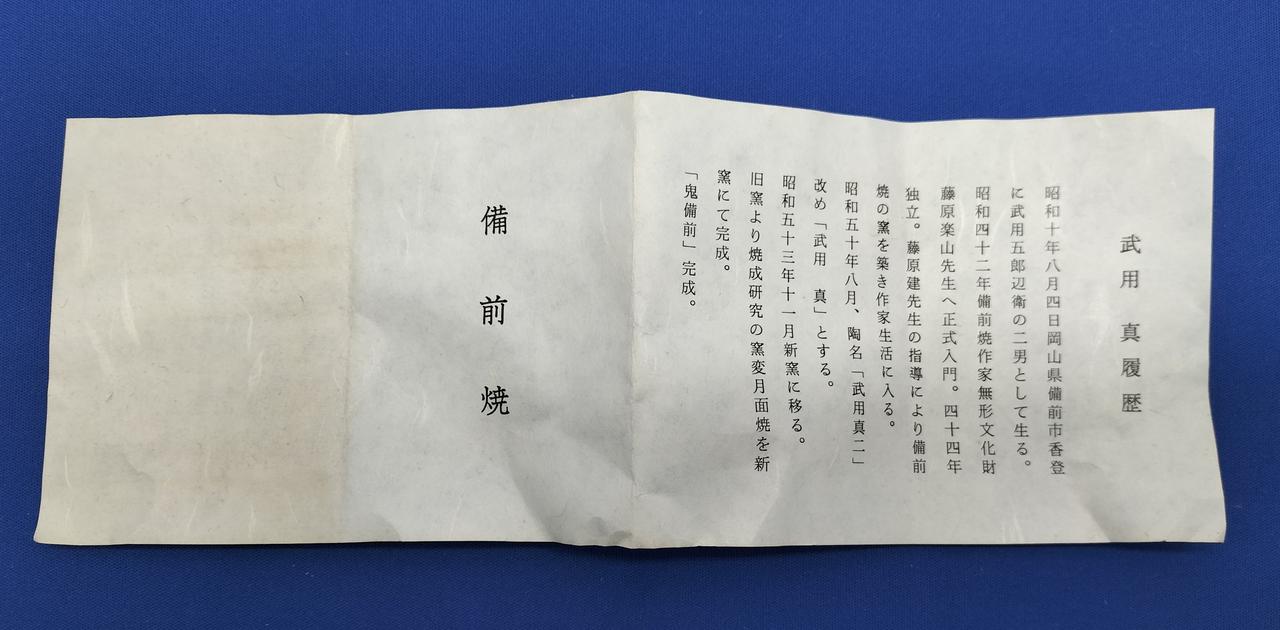 武用　真履歴
昭和十年八月四日岡山県備前市香登
に武用五郎辺衛の二男として生る。
昭和四十二年備前焼作家無形文化財
藤原楽山先生へ正式入門。四十四年
独立。藤原建先生の指導により備前
焼の窯を築き作家生活に入る。
昭和五十年八月、陶名「武用真二」
改め「武用　真」とする。
昭和五十三年十一月新窯に移る。
旧窯より焼成研究の窯変月面焼を新
窯にて完成。
「鬼備前」完成。
備前焼